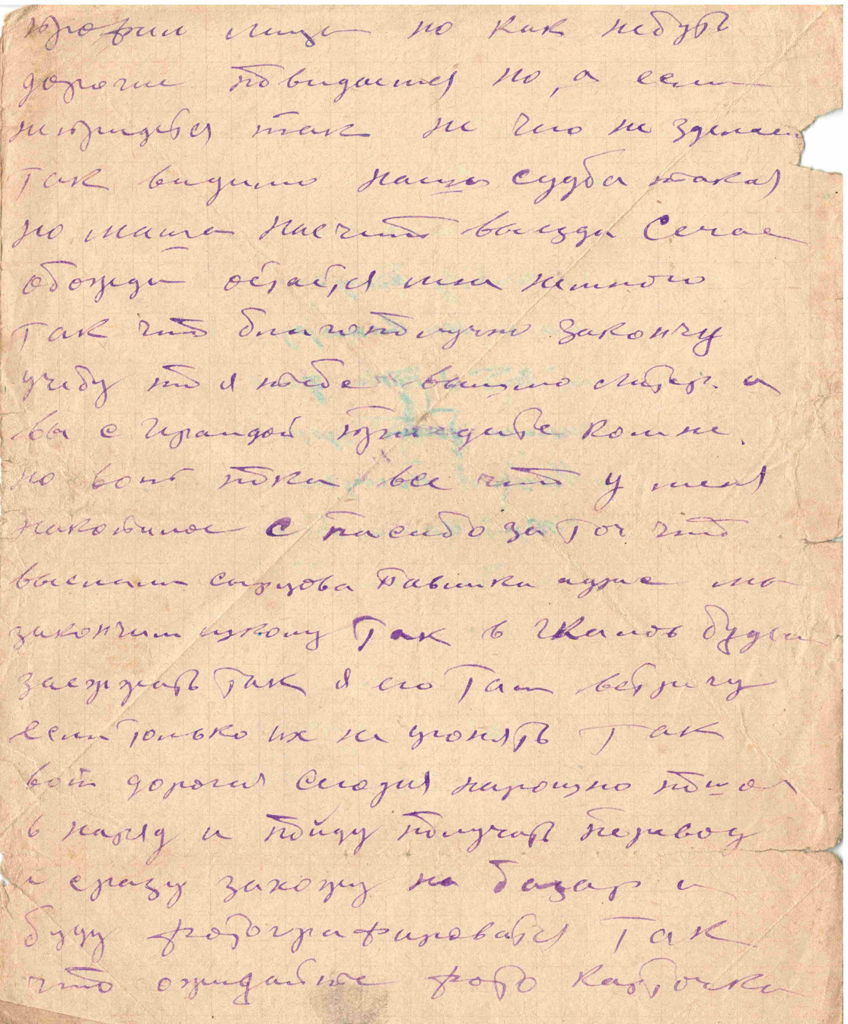 лица но как небудь
дорогие повидаемся но, а если
непридется так не чего не зделаеш
так видимо наша судба такая
но маша насчет выезда Сечас
обожди остайся или немного
так что благополучно закончу
учебу то я тебе вышлю литер. и
вы с Ираидой приедите комне.
но вот пока все что у меня
накопилос Спасибо за точ что
выслали сырцова Павлика адрис мы
закончим школу Так в Чкалов будем
заезжать Так я его Там встречу
если только их не угонять Так
вот дорогая Сегодня нарошно пошол
в наряд и пойду получать перевод
и сразу захожу на базар и
буду фотографироватся Так
что ожидайте фото карточки